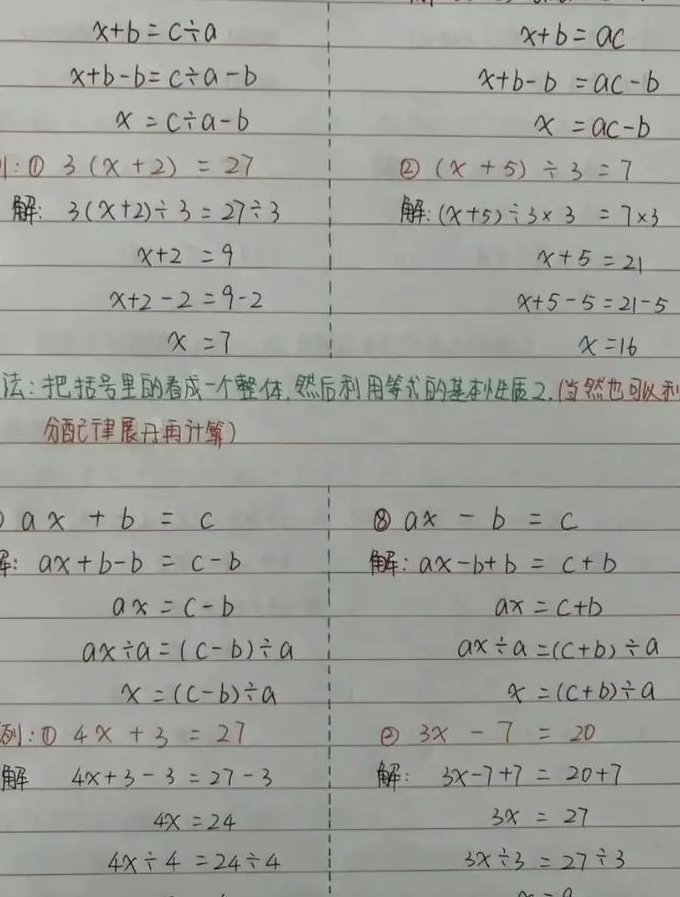 x+b=c÷a
x+b=ac
x+b-b=c÷a-b
x+b-b=ac-b
x=c÷a-b
x=ac-b
:① 3(x+2)=27
②(x+5)÷3=7
解: 3(x+2)÷3=27÷3
解:(x+5)÷3×3=7×3
x+2=9
x+5=21
x+2-2=9-2
x+5-5=21-5
x=7
x=16
法:把括号里的看成一个整体,然后利用等式的基本性质2.(当然也可以利
分配律展开再计算)
ax+b=c
⑧ ax-b=c
解: ax+b-b=c-b
解: ax-b+b=c+b
ax=c-b
ax=c+b
ax÷a=(c-b)÷a
ax÷a=(c+b)÷a
x=(c-b)÷a
x=(c+b)÷a
例:① 4x+3=27
② 3x-7=20
解 4x+3-3=27-3
解: 3x-7+7=20+7
4x=24
3x=27
4x÷4=24÷4
3x÷3=27÷3